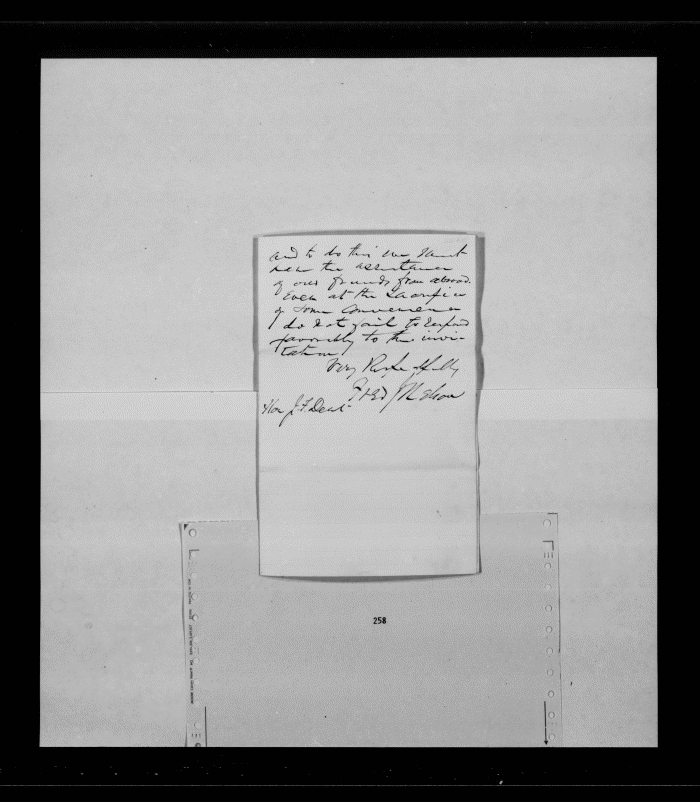 and to do this we want
the assistance
of our friends from abroad.
Even at the sacrifice
of some convenience
do not fail to respond
favorably to the invi-
tation
Very Respectfully
Fred J Nelson
Hon J. F. Dent
258